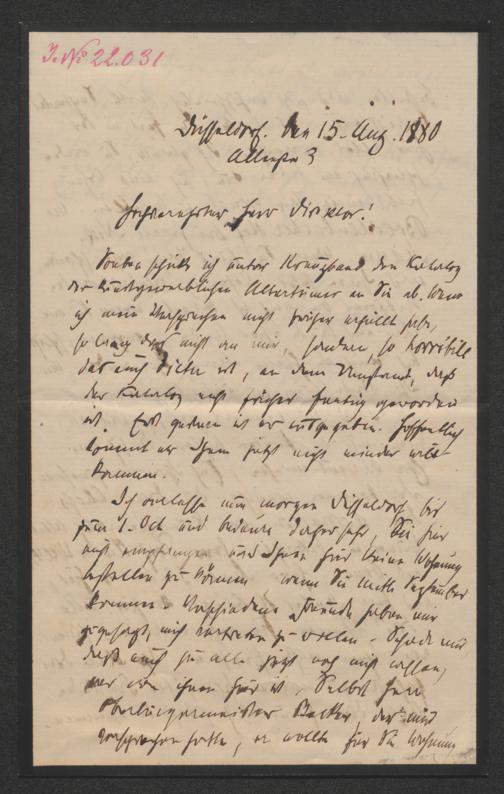 J. № 22.031
Düsseldorf. den 15. Aug. 1880
Hochverehrter Herr Direktor!
Soeben schicke ich unter Kreuzband den Katalog
der kunstgewerblichen Altertümer an Sie ab. Wenn
ich mein Versprechen nicht früher erfüllt habe,
so lag das nicht an mir, sondern, so horribile
das auch dictu ist, an dem Umstand, daß
der Katalog nicht früher fertig geworden
ist. Erst gestern ist er ausgegeben. Hoffentlich
kommt er Ihnen jetzt nicht minder will-
kommen.
Ich verlasse nun morgen Düsseldorf bis
zum 1. Oct und bedaure daher sehr, Sie hier
nicht empfangen und Ihnen hier keine Wohnung
bestellen zu können wenn Sie mitte September
kommen. Verschiedene Freunde haben mir
zugesagt, mich vertreten zu wollen. Schade nur
daß auch sie alle jetzt noch nicht wissen,
wer von ihnen hier ist. Selbst Herr
Oberbürgermeister Becker, der mir
versprochen hatte, er wollte für Sie Wohnung